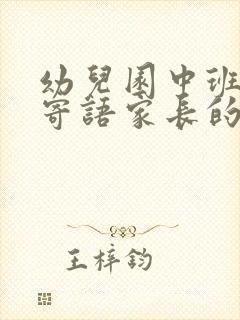 幼兒園中班
寄語家長的
王梓鈞